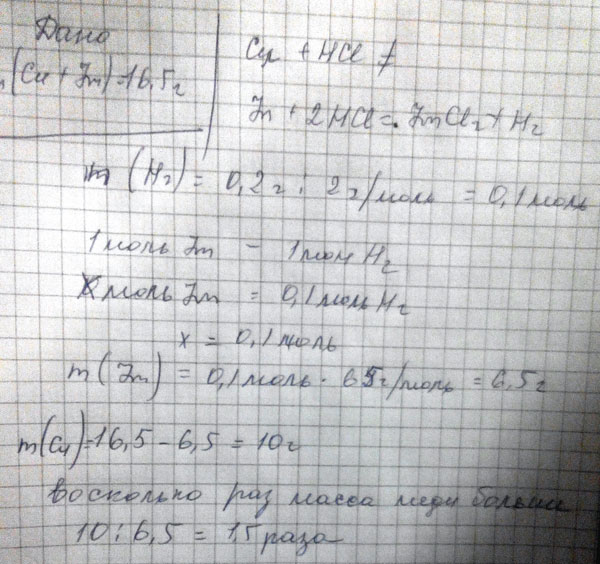 Дано
m(Cu + Zn) = 16,5г
Cu + HCl ≠
Zn + 2HCl = ZnCl2 + H2
m (H2) = 0,2г : 2г/моль = 0,1моль
1моль Zn – 1моль H2
Xмоль Zn = 0,1моль H2
x = 0,1моль
m(Zn) = 0,1моль · 65г/моль = 6,5г
m(Cu) = 16,5 – 6,5 = 10г
восколько раз масса меди больше
10 : 6,5 = 1,5 раза